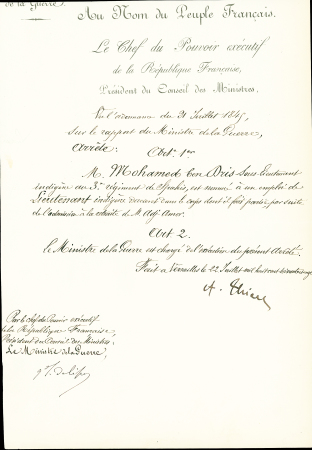 de la Guerre.
Au Nom du Peuple Français.
Le Chef du Pouvoir exécutif
de la République Française,
Président du Conseil des Ministres,
Vu l'ordonnance du 31 Juillet 1845,
Sur le rapport du Ministre de la Guerre,
Arrête:
Art. 1er
M. Mohamed ben Dris Sous Lieutenant
indigène au 3e régiment de Spahis, est nommé à un emploi de
Lieutenant indigène vacant dans le corps dont il fait partie par suite
de l'admission à la retraite de M. Adj Amor.
Art 2.
Le Ministre de la Guerre est chargé de l'exécution du présent Arrêté.
Fait à Versailles le 22 Juillet mil huit cent
A. Thiers
Par le chef du Pouvoir exécutif
de la République Française,
Président du Conseil des Ministres
Le Ministre de la Guerre